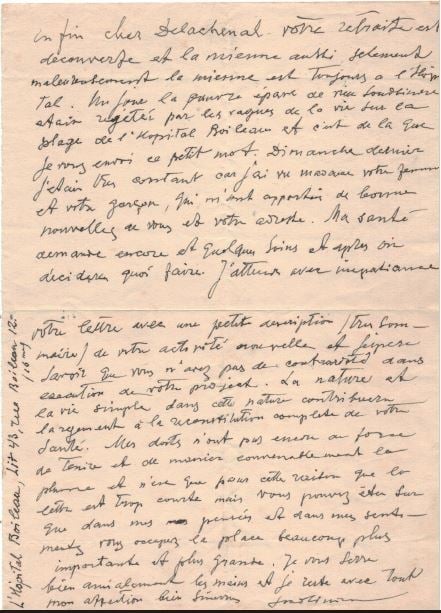 En fin cher Delachenal votre retraite est
decouverte et la mienne aussi, selement
maleureusement la mienne est toujours a l'Hopi-
tal. Un jour la pauvre épave de
était regetée par les vagues de la vie sur la
plage de l'Hopital Boileau et c'est de la que
je vous envoi ce petit mot. Dimanche dernier
j'étais tres constant car j'ai vu madame votre femme
et votre garçon, qui m'ont apporté de bonne
nouvelles de vous et votre adresse. Ma santé
demande encore et quelques soins et apres on
decidera quoi faire. J'attends avec impatience
votre lettre avec une petit description (tres som-
maire) de votre activité nouvelle et j'espere
savoir que vous n'avez pas de contrariété dans
execution de votre project. La nature et
la vie simple dans cette nature contribuera
largement à la reconstitution complete de votre
Santé. Mes doits n'ont pas encore la force
de tenire et de manier convenablement la
plume et n'est que pour cette raison que la
lettre est trop courte mais vous pouvez étre sur
que dans mes pensées et dans mes senti-
ments vous occupez la place beaucoup plus
importante et plus grande. Je vous serre
bien amicalement les mains et je reste avec tout
mon affection bien sincere
L'Hôpital Boileau, Lit 43, rue Boileau 12-